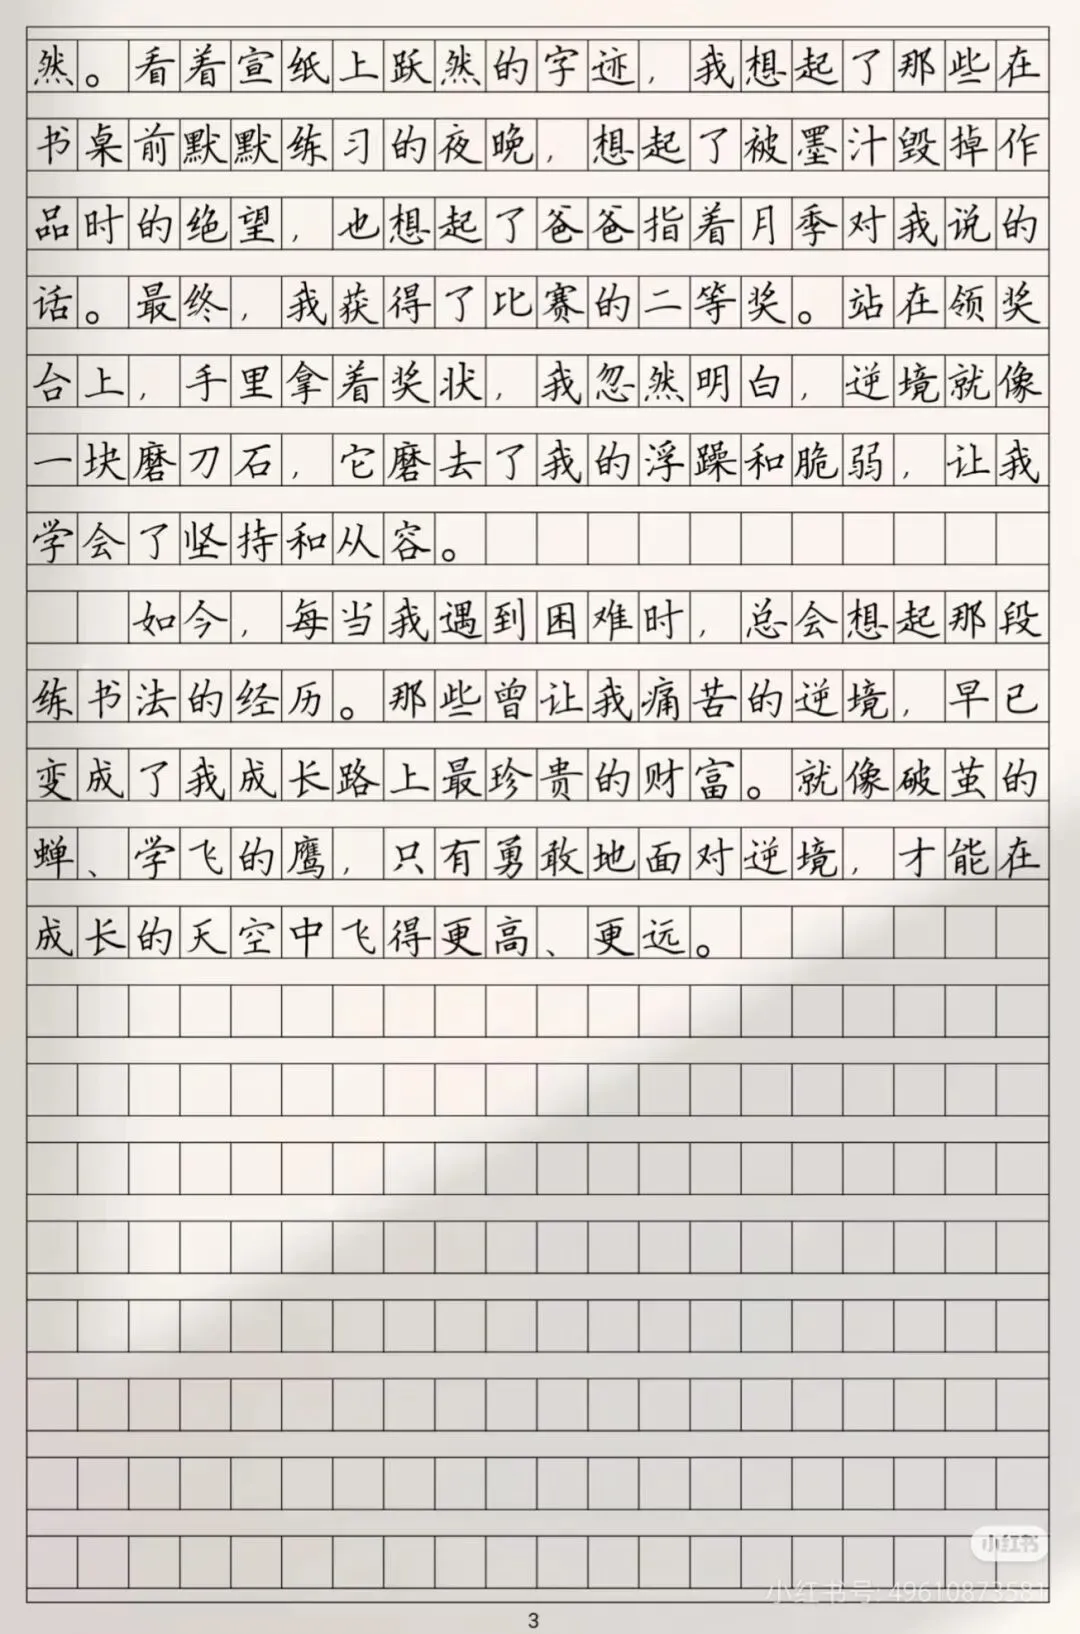 然。看着宣纸上跃然的字迹，我想起了那些在
书桌前默默练习的夜晚，想起了被墨汁毁掉作
品时的绝望，也想起了爸爸指着月季对我说的
话。最终，我获得了比赛的二等奖。站在领奖
台上，手里拿着奖状，我忽然明白，逆境就像
一块磨刀石，它磨去了我的浮躁和脆弱，让我
学会了坚持和从容。
如今，每当我遇到困难时，总会想起那段
练书法的经历。那些曾让我痛苦的逆境，早已
变成了我成长路上最珍贵的财富。就像破茧的
蝉、学飞的鹰，只有勇敢地面对逆境，才能在
成长的天空中飞得更高、更远。
小红书
小红书号: 49610873581
3